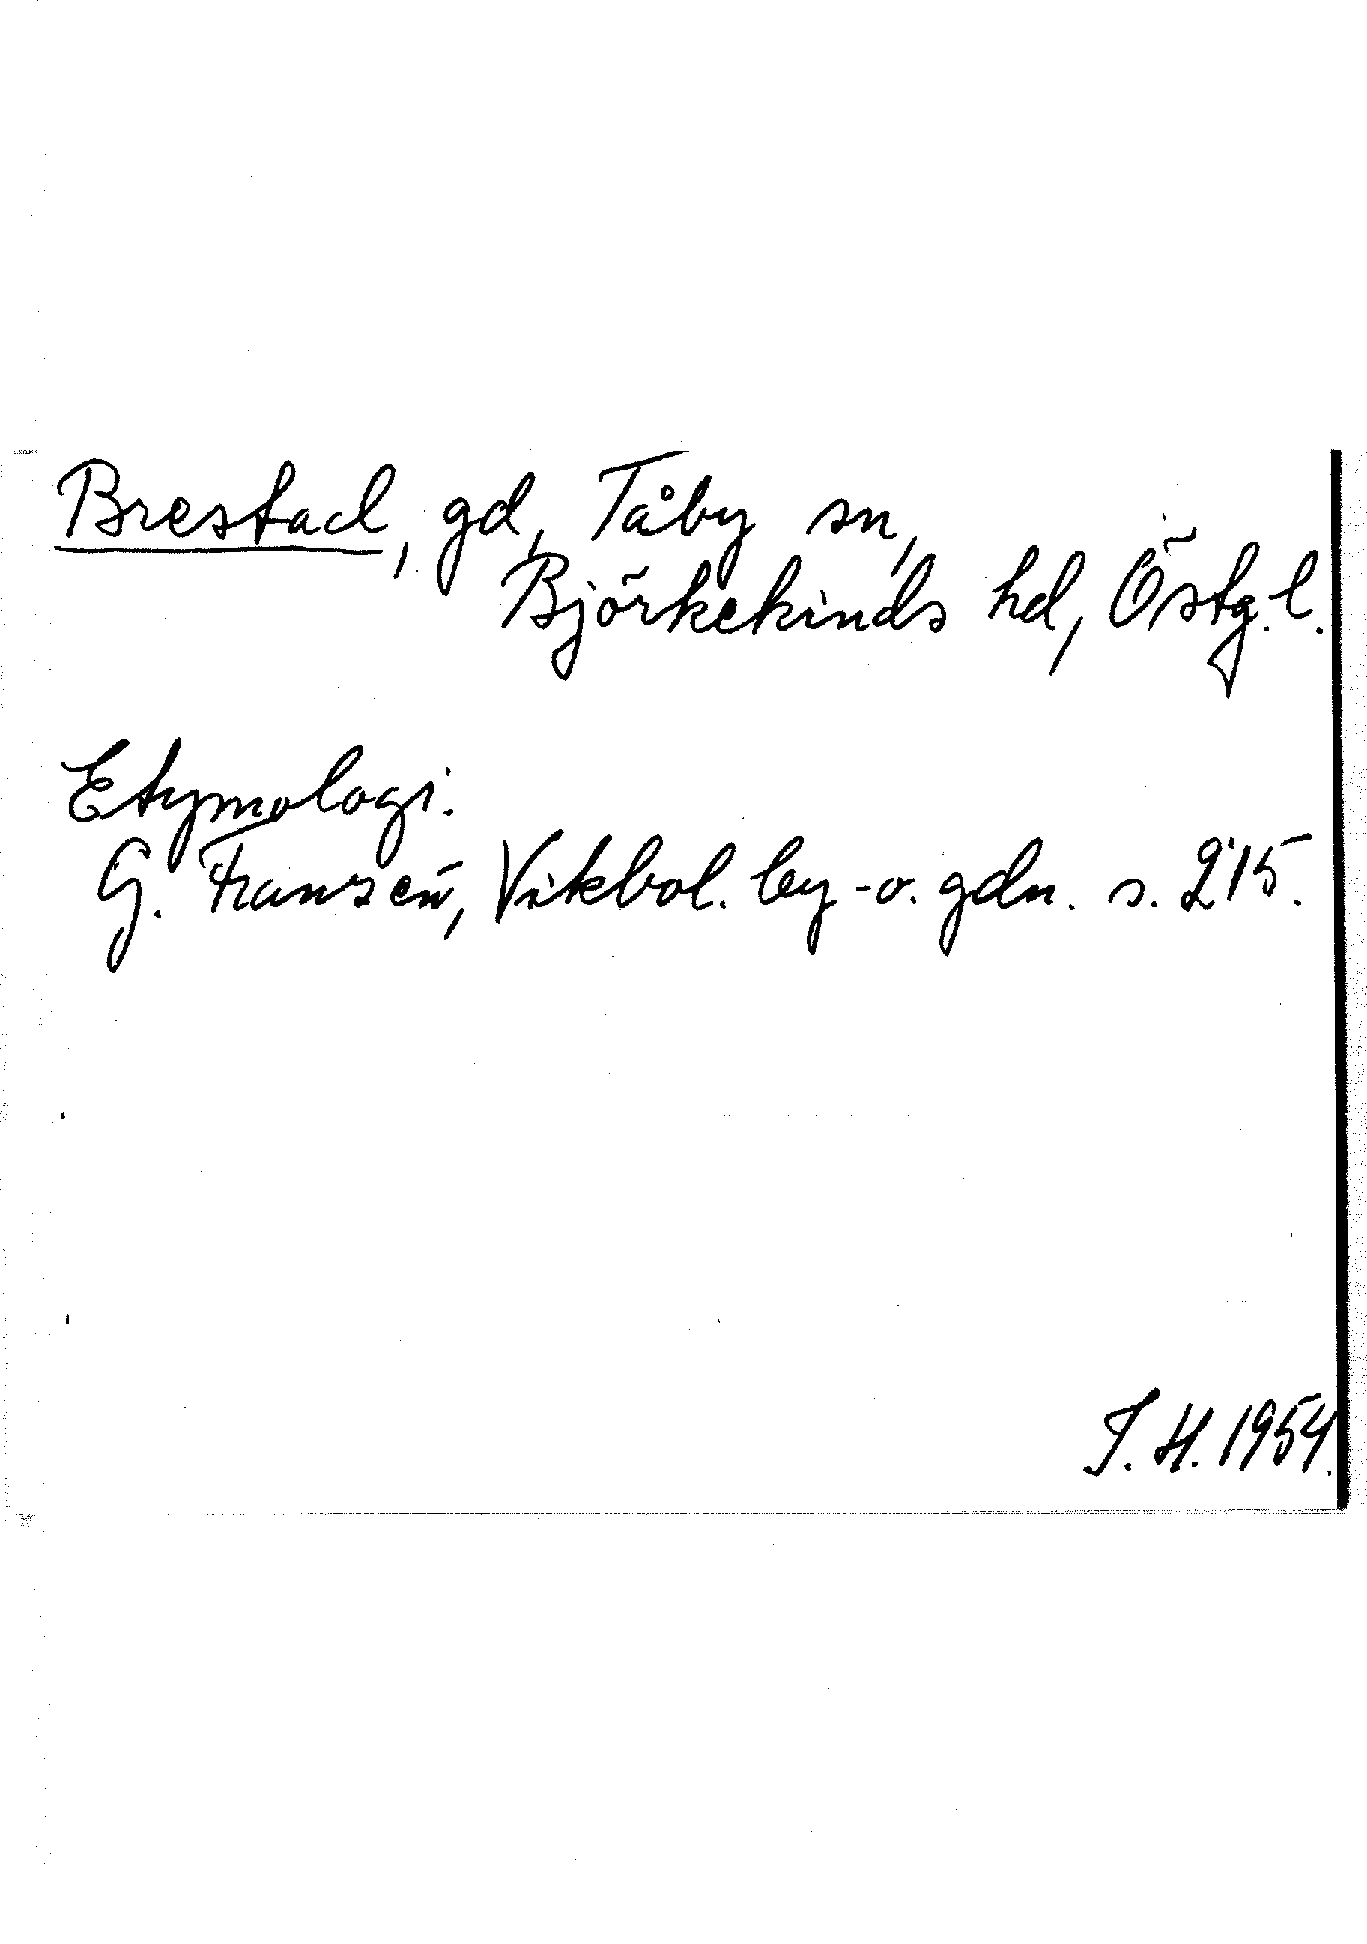 Brestad, gd, Tåby sn,
Björkekinds hd, Östg.l.
Etymologi.
G. Franzén, Vikbol. by- o. gdn. s. 215.
I. H. 1954.